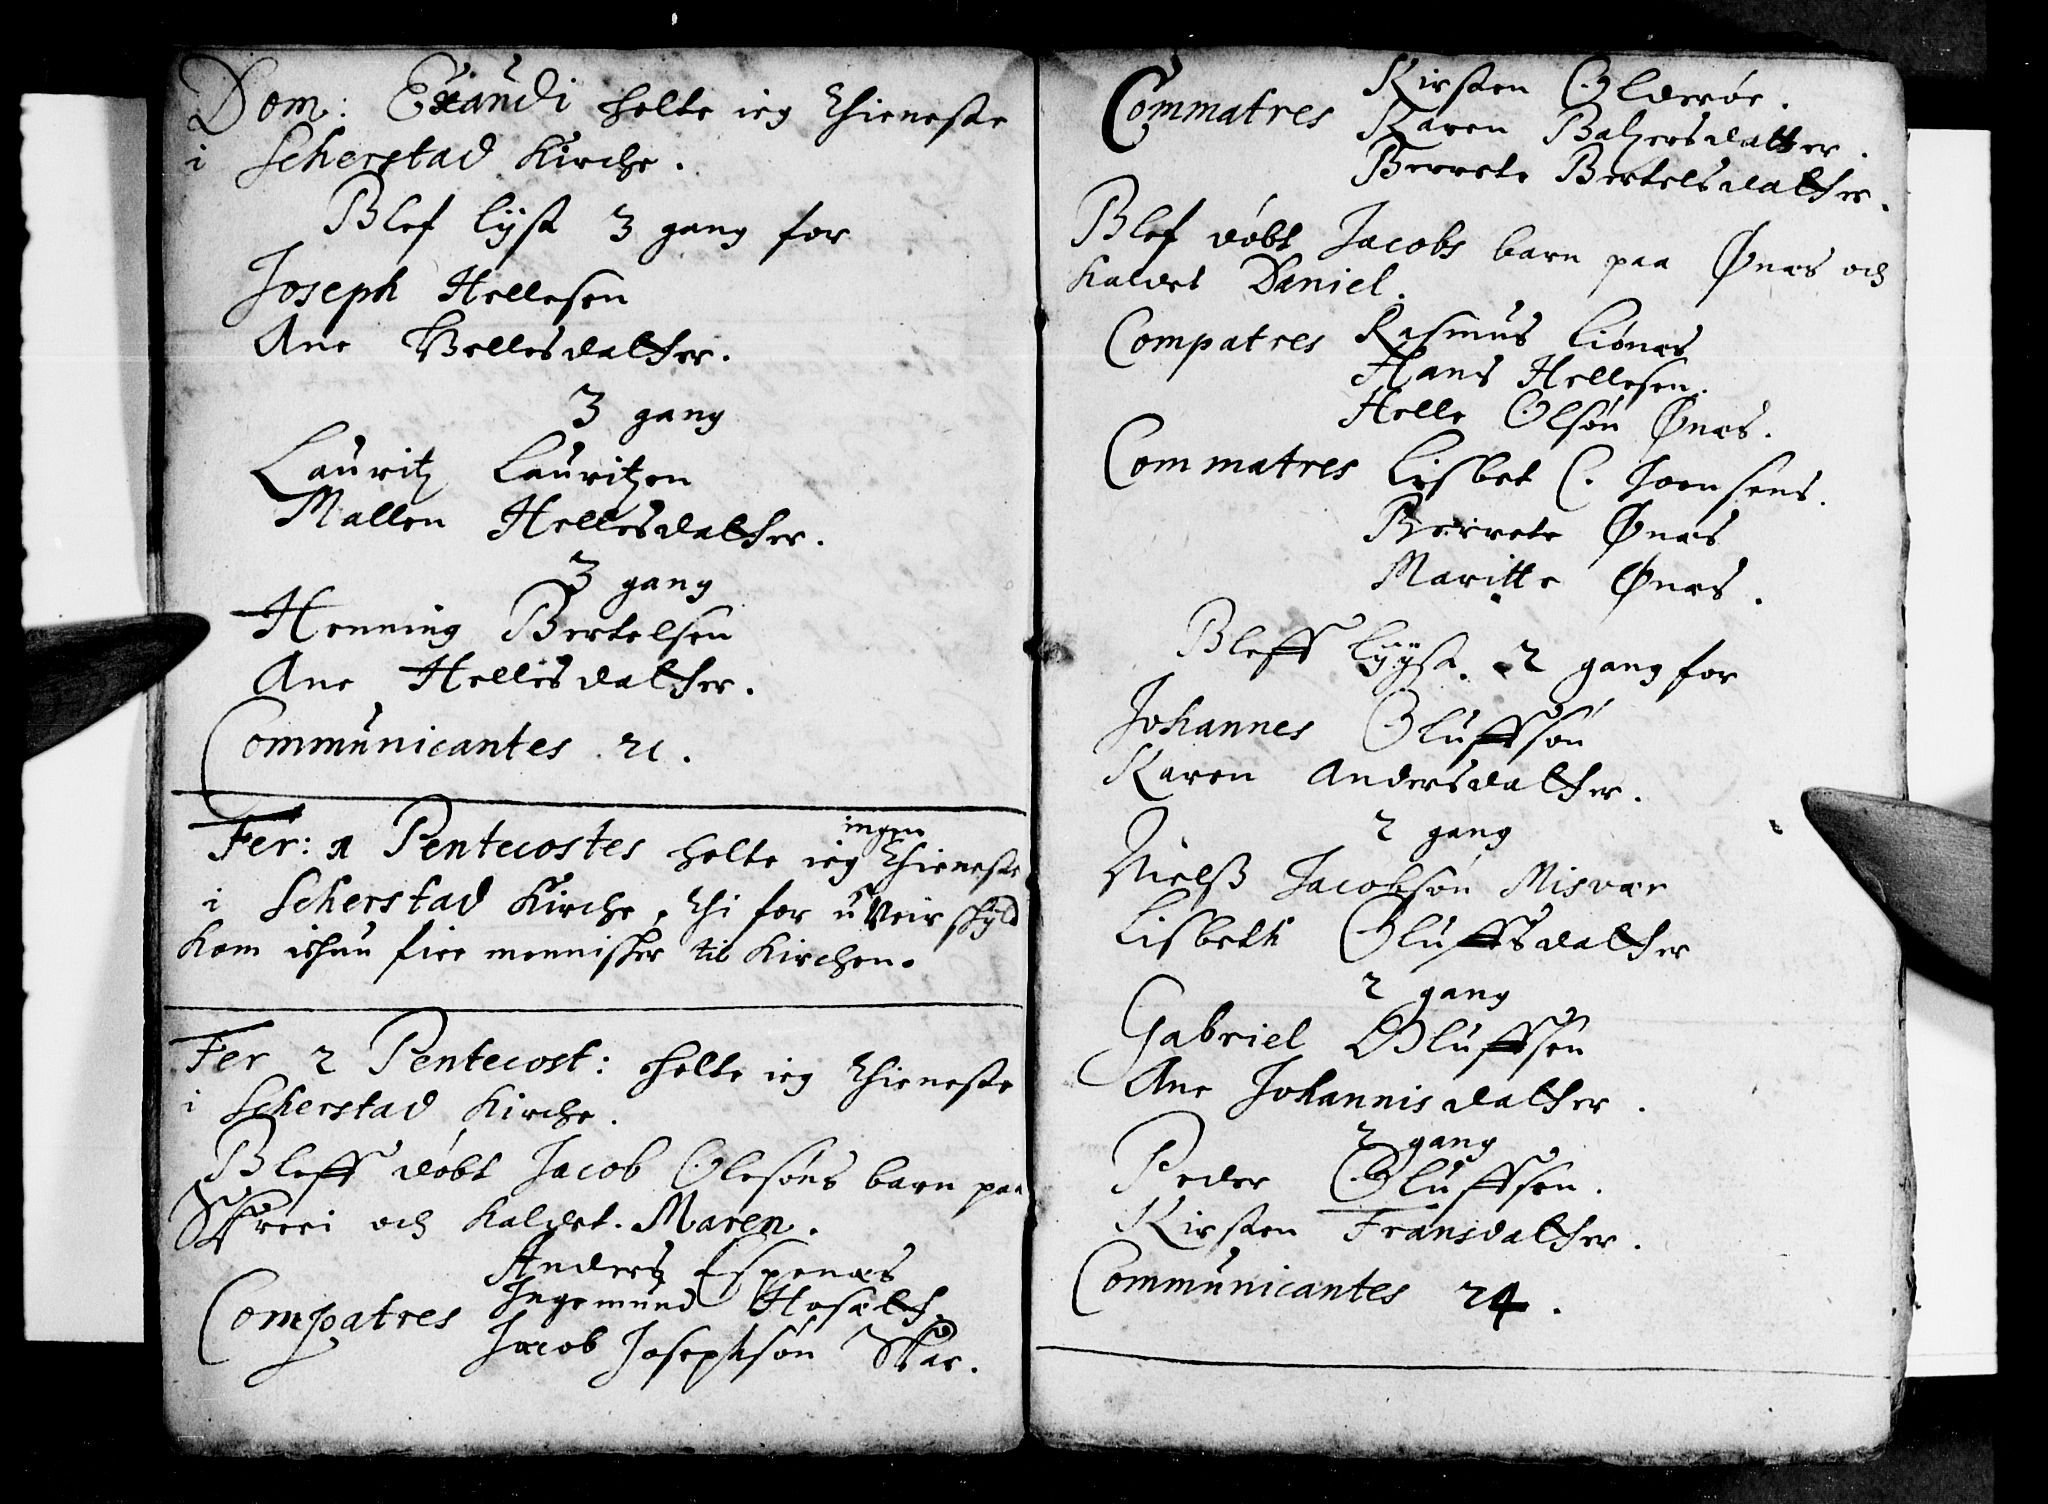 Dom: Exaudi holte ieg thieneste
i Scherstad Kirche.
Blef lyst 3 gang for
Joseph Hellesen
Ane Vellesdatther.
3 gang
Lauritz Lauritzen
Mallen Hellesdatther.
3 gang
Henning Bertelsen
Ane Hellesdatther.
Communicantes 21.
Fer: 1 Pentecostes holte ieg ingen thieneste
i Scherstad Kirche, thi for uVeir skyld
kom ichun fire mennisker til Kirchen.
Fer 2 Pentecost: holte ieg thieneste
i Scherstad Kirche.
Bleff døbt Jacob Olesøns barn paa
och kaldet Maren.
Anders Espenæs
Compatres Ingemund
Jacob Josephsøn Skar.
Commatres Kirsten Olderøe.
Karen Baltzersdatther.
Berrete Bertelsdatther.
Blef døbt Jacobs barn paa Ønæs och
kaldet Daniel.
Compatres Rasmus Liønæs
Hans Hellesen.
Helle Olsøn Ønæs.
Commatres Lisbet C. Joensens.
Berrete Ønæs
Maritte Ønæs.
Bleff lyyst. 2 gang for
Johannes Oluffsøn
Karen Andersdatther.
2 gang
Nielß Jacobsøn Misvær
Lisbeth Oluffsdatther
2 gang
Gabriel Oluffsøn
Ane Johannisdatther.
2 gang
Peder Oluffsøn.
Kirsten Fransdatther.
Communicantes 24.